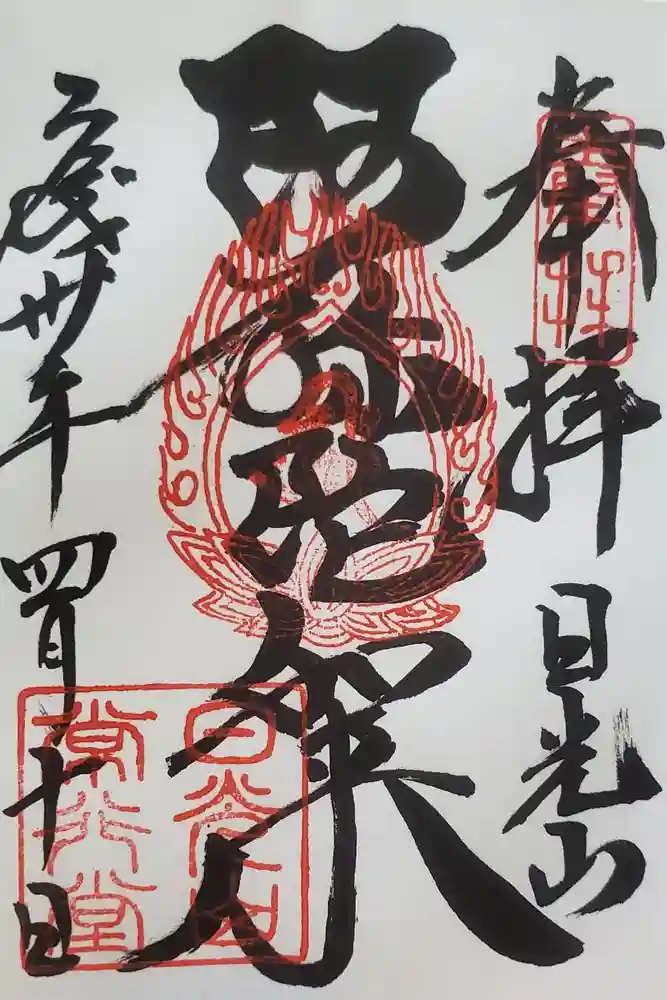 奉拝 日光山
阿弥陀如来
平成卅年四月十日
日光山
常行堂